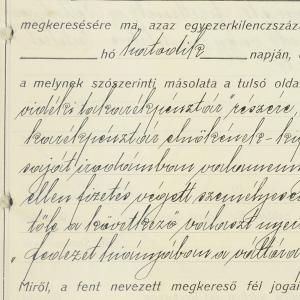 megkeresésére ma, azaz egyezerkilenczszáz
hó hatodik napján,
a melynek szószerinti másolata a tulsó olda
vidéki takarékpénztár" részére,
karékpénztár elnökének - ku
saját irodámban valamenn
ellen fizetés végett személyese
tőle a következő választ nyer
„fedezet hiányában a váltóra
Miről, a fent nevezett megkereső fél jogán